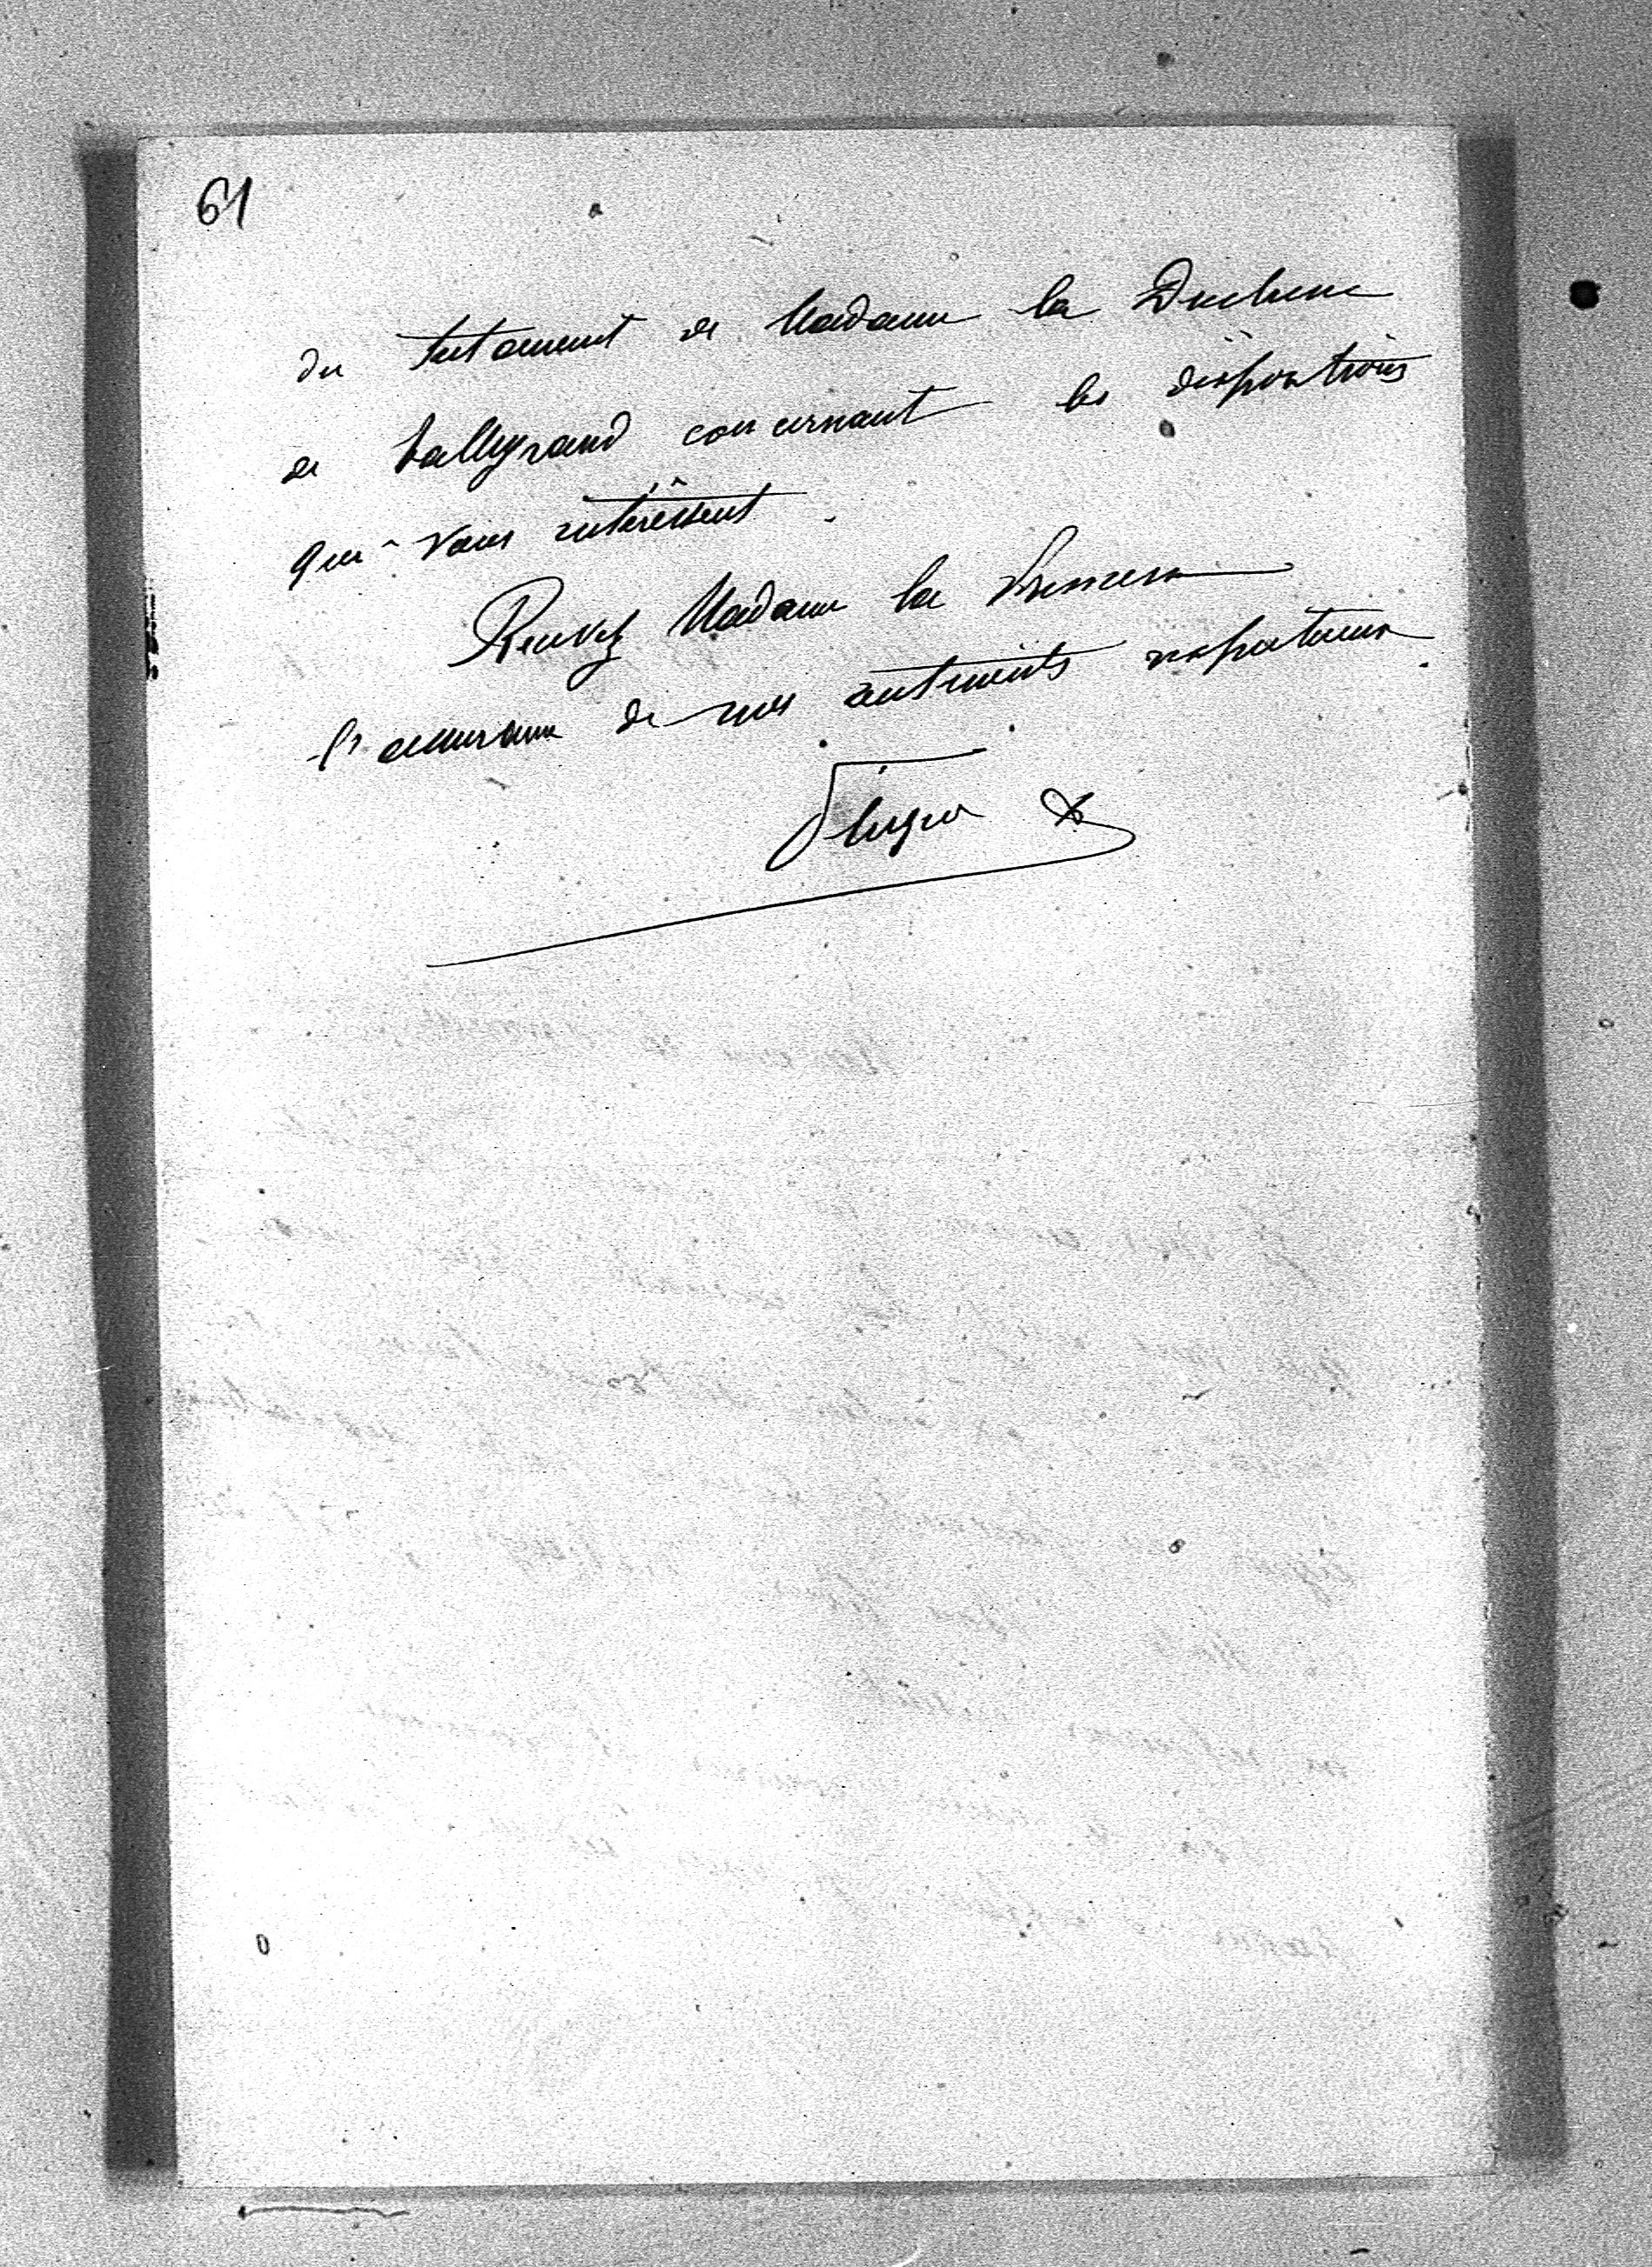 61
du testament de Madame la Duchesse
de Talleyrand concernant les dispositions
qui vous intéressent.
Recevez Madame la Princesse
l'assurance de mes sentiments respectueux.